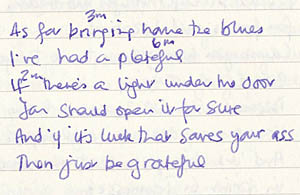 3m
As for bringing home the blues
6m
I've had a plateful
2m
If there's a light under the door
You should open it for sure
And if it's luck that saves your ass
Then just be grateful